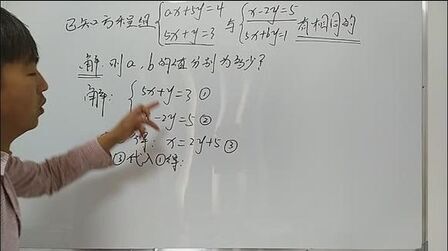 已知二方程组{ax+5y=4 5x+y=3 与{x-2y=5 5x+by=1 有相同的
解 则a、b的值分别为多少?
解: {5x+y=3 ①
-2y=5 ②
得: x=2y+5 ③
③代入①得: